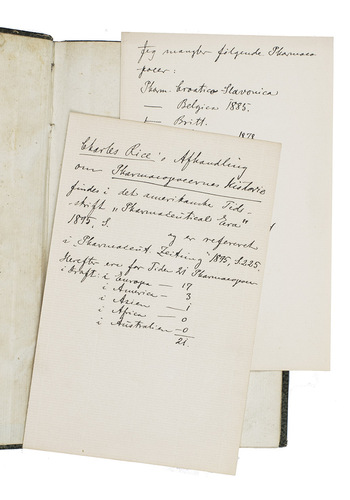 Jeg mangler følgende Pharmaco
poeer:
Pharm. Croatico-Slavonica
— Belgica 1885.
— Britt.
1878
Charles Rice's Afhandling
om Pharmacopoeernes historie
findes i det amerikanske Tids-
skrift „Pharmaceutical Era"
1895, S. og er refereret
i Pharmaceut. Zeitung 1895, S.225.
Herefter ere for Tiden 21 Pharmacopoeer
i kraft: i Europa — 17
i America — 3
i Asien — 1
i Africa — 0
i Australien — 0
21.